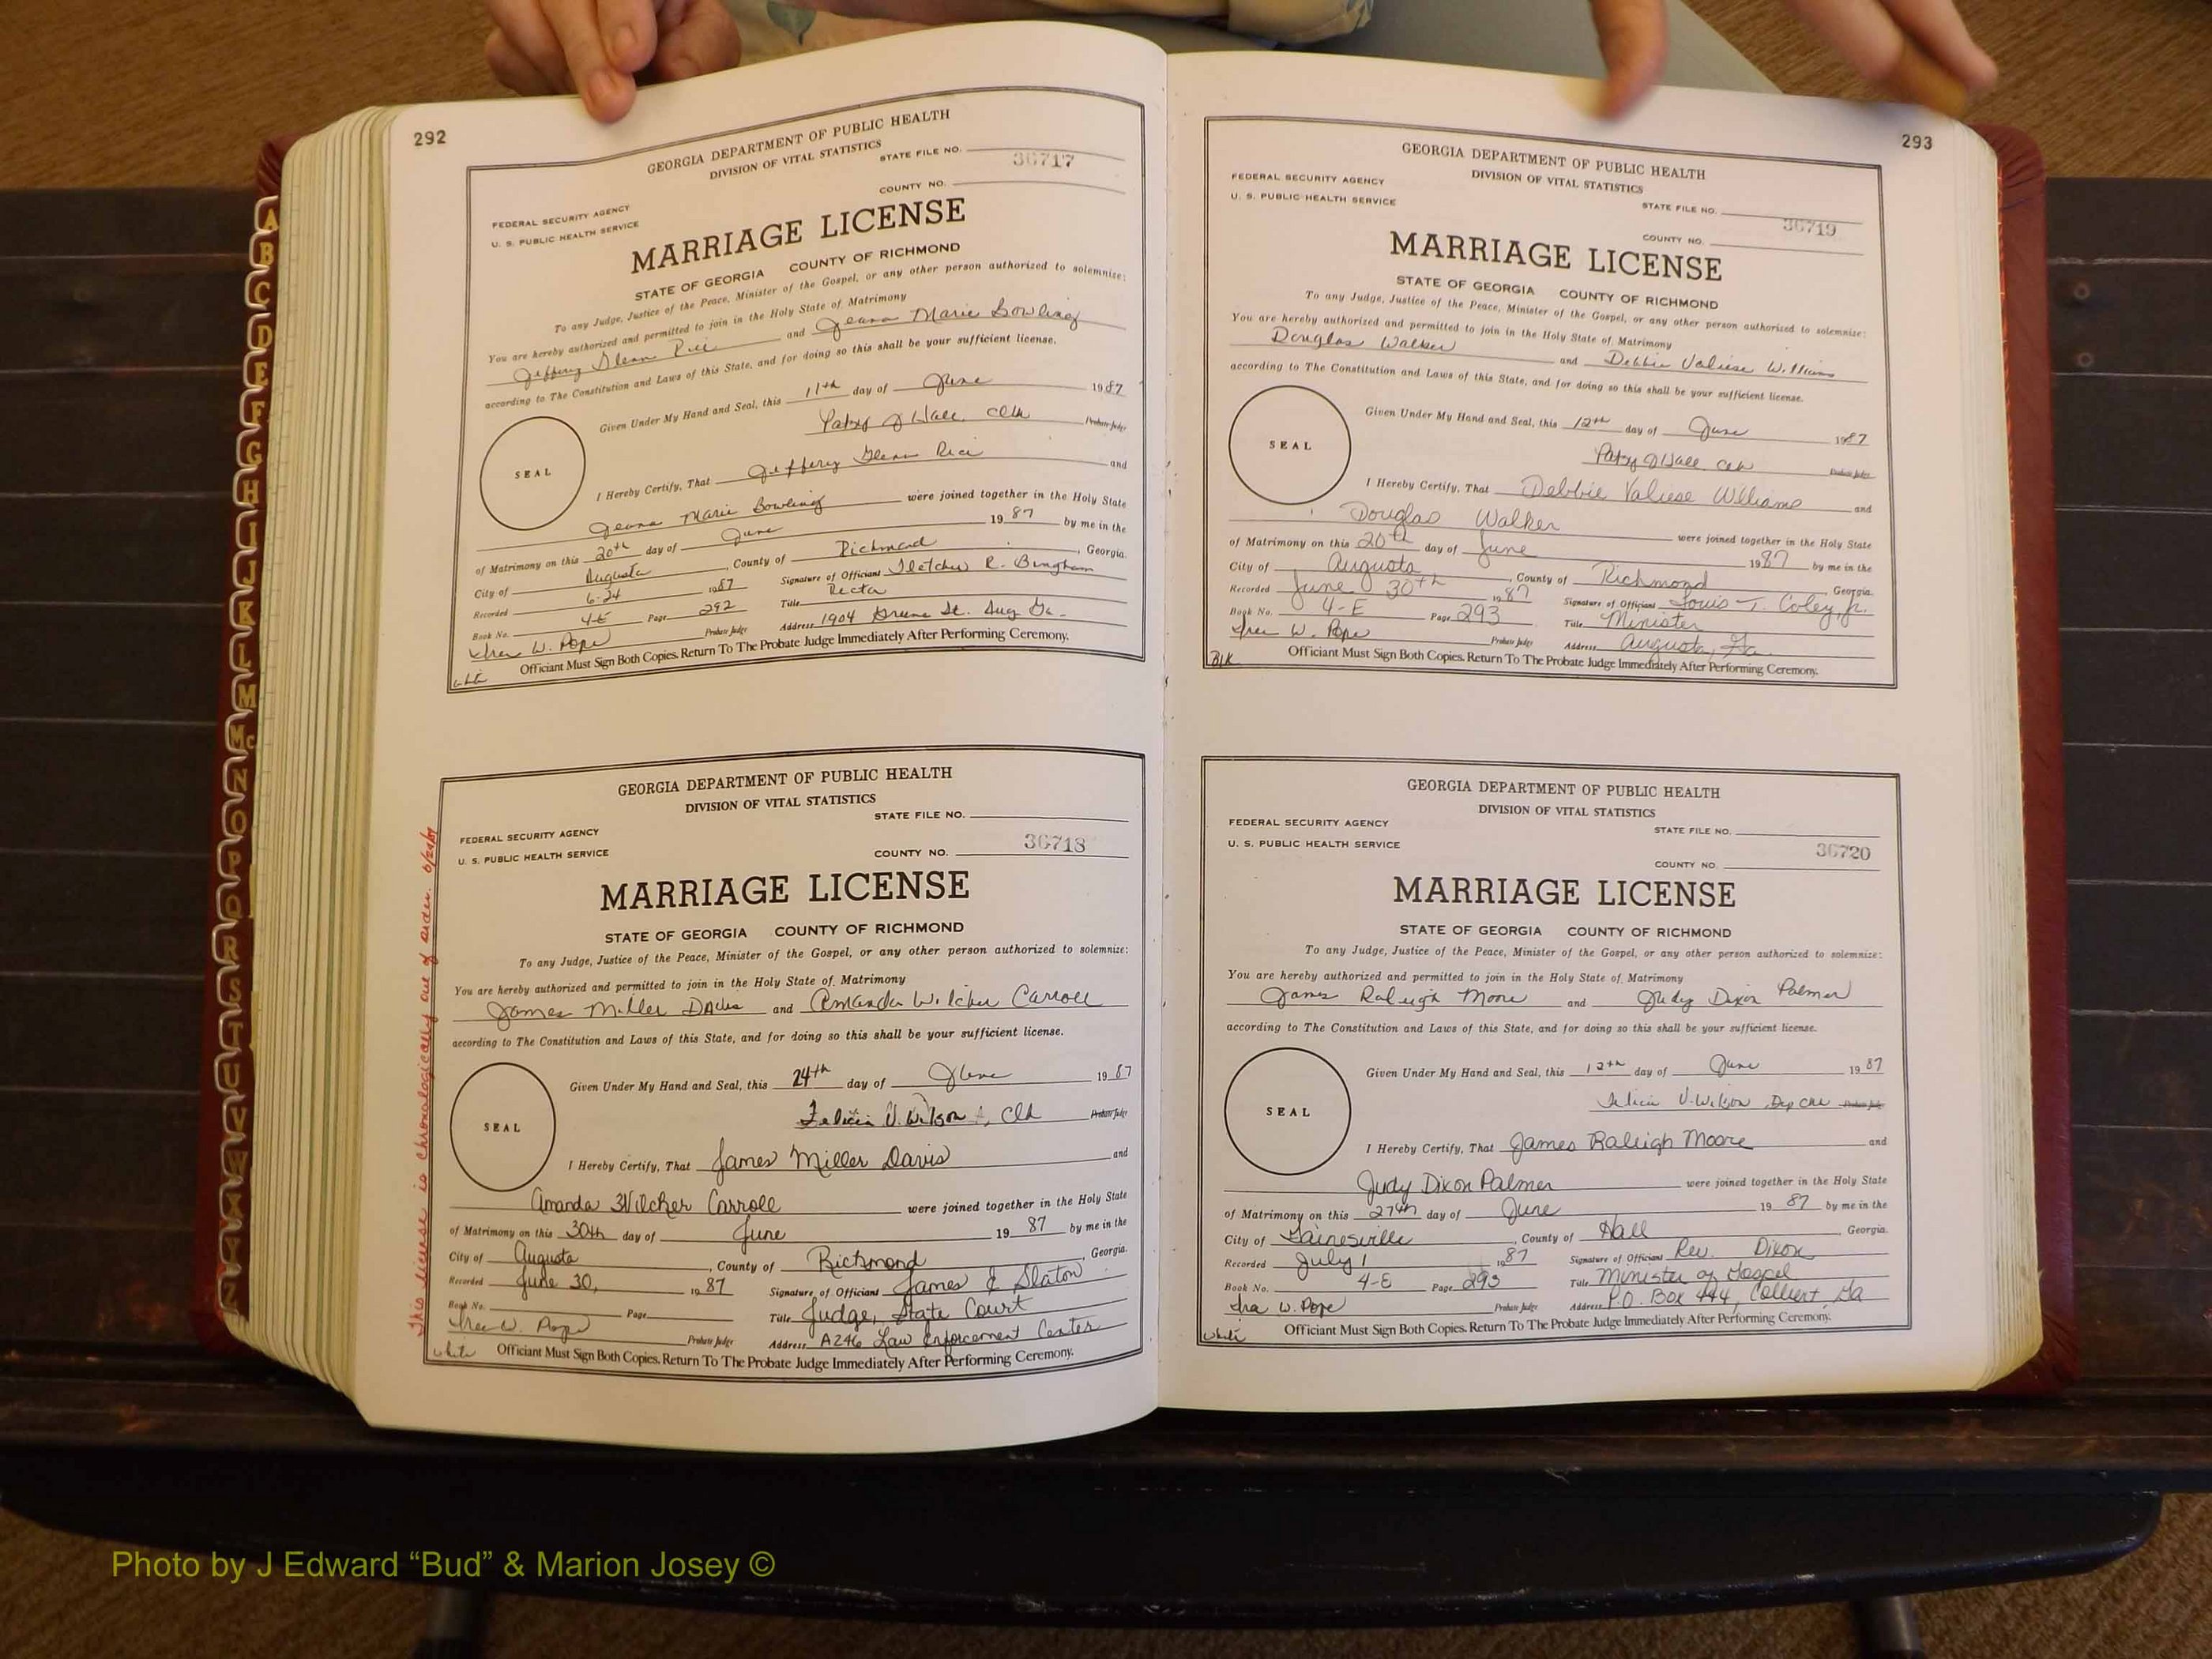 292
GEORGIA DEPARTMENT OF PUBLIC HEALTH
DIVISION OF VITAL STATISTICS
STATE FILE NO. 36717
COUNTY NO.
FEDERAL SECURITY AGENCY
U. S. PUBLIC HEALTH SERVICE
MARRIAGE LICENSE
STATE OF GEORGIA COUNTY OF RICHMOND
To any Judge, Justice of the Peace, Minister of the Gospel, or any other person authorized to solemnize:
You are hereby authorized and permitted to join in the Holy State of Matrimony
Jeffery Glenn Rice and Jeana Marie Bowling
according to The Constitution and Laws of this State, and for doing so this shall be your sufficient license.
Given Under My Hand and Seal, this 11th day of June 1987
Patsy J Hall Clk Probate Judge
SEAL
I Hereby Certify, That Jeffery Glenn Rice and
Jeana Marie Bowling were joined together in the Holy State
of Matrimony on this 20th day of June 1987 by me in the
City of Augusta, County of Richmond, Georgia.
Recorded 6-24 1987 Signature of Officiant Fletcher R. Bingham
Book No. 4-E Page 292 Title Rector
Ira W. Pope Probate Judge Address 1904 Greene St. Aug Ga.
white Officiant Must Sign Both Copies. Return To The Probate Judge Immediately After Performing Ceremony.
This license is chronologically out of order. 6/24/87
GEORGIA DEPARTMENT OF PUBLIC HEALTH
DIVISION OF VITAL STATISTICS
STATE FILE NO.
FEDERAL SECURITY AGENCY
U. S. PUBLIC HEALTH SERVICE
COUNTY NO. 36718
MARRIAGE LICENSE
STATE OF GEORGIA COUNTY OF RICHMOND
To any Judge, Justice of the Peace, Minister of the Gospel, or any other person authorized to solemnize:
You are hereby authorized and permitted to join in the Holy State of Matrimony
James Miller Davis and Amanda Wilcher Carroll
according to The Constitution and Laws of this State, and for doing so this shall be your sufficient license.
Given Under My Hand and Seal, this 24th day of June 1987
Felicia V. Wilson, Clk Probate Judge
SEAL
I Hereby Certify, That James Miller Davis and
Amanda Wilcher Carroll were joined together in the Holy State
of Matrimony on this 30th day of June 1987 by me in the
City of Augusta, County of Richmond, Georgia.
Recorded June 30, 1987 Signature of Officiant James E Slaton
Book No. Page Title Judge, State Court
Ira W. Pope Probate Judge Address A246 Law Enforcement Center
white Officiant Must Sign Both Copies. Return To The Probate Judge Immediately After Performing Ceremony.
293
GEORGIA DEPARTMENT OF PUBLIC HEALTH
DIVISION OF VITAL STATISTICS
FEDERAL SECURITY AGENCY
U. S. PUBLIC HEALTH SERVICE
STATE FILE NO. 36719
COUNTY NO.
MARRIAGE LICENSE
STATE OF GEORGIA COUNTY OF RICHMOND
To any Judge, Justice of the Peace, Minister of the Gospel, or any other person authorized to solemnize:
You are hereby authorized and permitted to join in the Holy State of Matrimony
Douglas Walker and Debbie Valiese Williams
according to The Constitution and Laws of this State, and for doing so this shall be your sufficient license.
Given Under My Hand and Seal, this 12th day of June 1987
Patsy J Hall Clk Probate Judge
SEAL
I Hereby Certify, That Debbie Valiese Williams and
Douglas Walker were joined together in the Holy State
of Matrimony on this 20th day of June 1987 by me in the
City of Augusta, County of Richmond, Georgia.
Recorded June 30th 1987 Signature of Officiant Louis T. Coley, Jr.
Book No. 4-E Page 293 Title Minister
Ira W. Pope Probate Judge Address Augusta, Ga.
Blk Officiant Must Sign Both Copies. Return To The Probate Judge Immediately After Performing Ceremony.
GEORGIA DEPARTMENT OF PUBLIC HEALTH
DIVISION OF VITAL STATISTICS
FEDERAL SECURITY AGENCY
STATE FILE NO.
U. S. PUBLIC HEALTH SERVICE
COUNTY NO. 36720
MARRIAGE LICENSE
STATE OF GEORGIA COUNTY OF RICHMOND
To any Judge, Justice of the Peace, Minister of the Gospel, or any other person authorized to solemnize:
You are hereby authorized and permitted to join in the Holy State of Matrimony
James Raleigh Moore and Judy Dixon Palmer
according to The Constitution and Laws of this State, and for doing so this shall be your sufficient license.
Given Under My Hand and Seal, this 12th day of June 1987
Felicia V. Wilson, Dep Clk Probate Judge
SEAL
I Hereby Certify, That James Raleigh Moore and
Judy Dixon Palmer were joined together in the Holy State
of Matrimony on this 27th day of June 1987 by me in the
City of Gainesville, County of Hall, Georgia.
Recorded July 1 1987 Signature of Officiant Rev. Dixon
Book No. 4-E Page 293 Title Minister of Gospel
Ira W. Pope Probate Judge Address P.O. Box 444, Colbert, Ga
white Officiant Must Sign Both Copies. Return To The Probate Judge Immediately After Performing Ceremony.
A
B
C
D
E
F
G
H
I
J
K
L
M
Mc
N
O
P
Q
R
S
T
U
V
W
X
Y
Z
Photo by J Edward “Bud” & Marion Josey ©